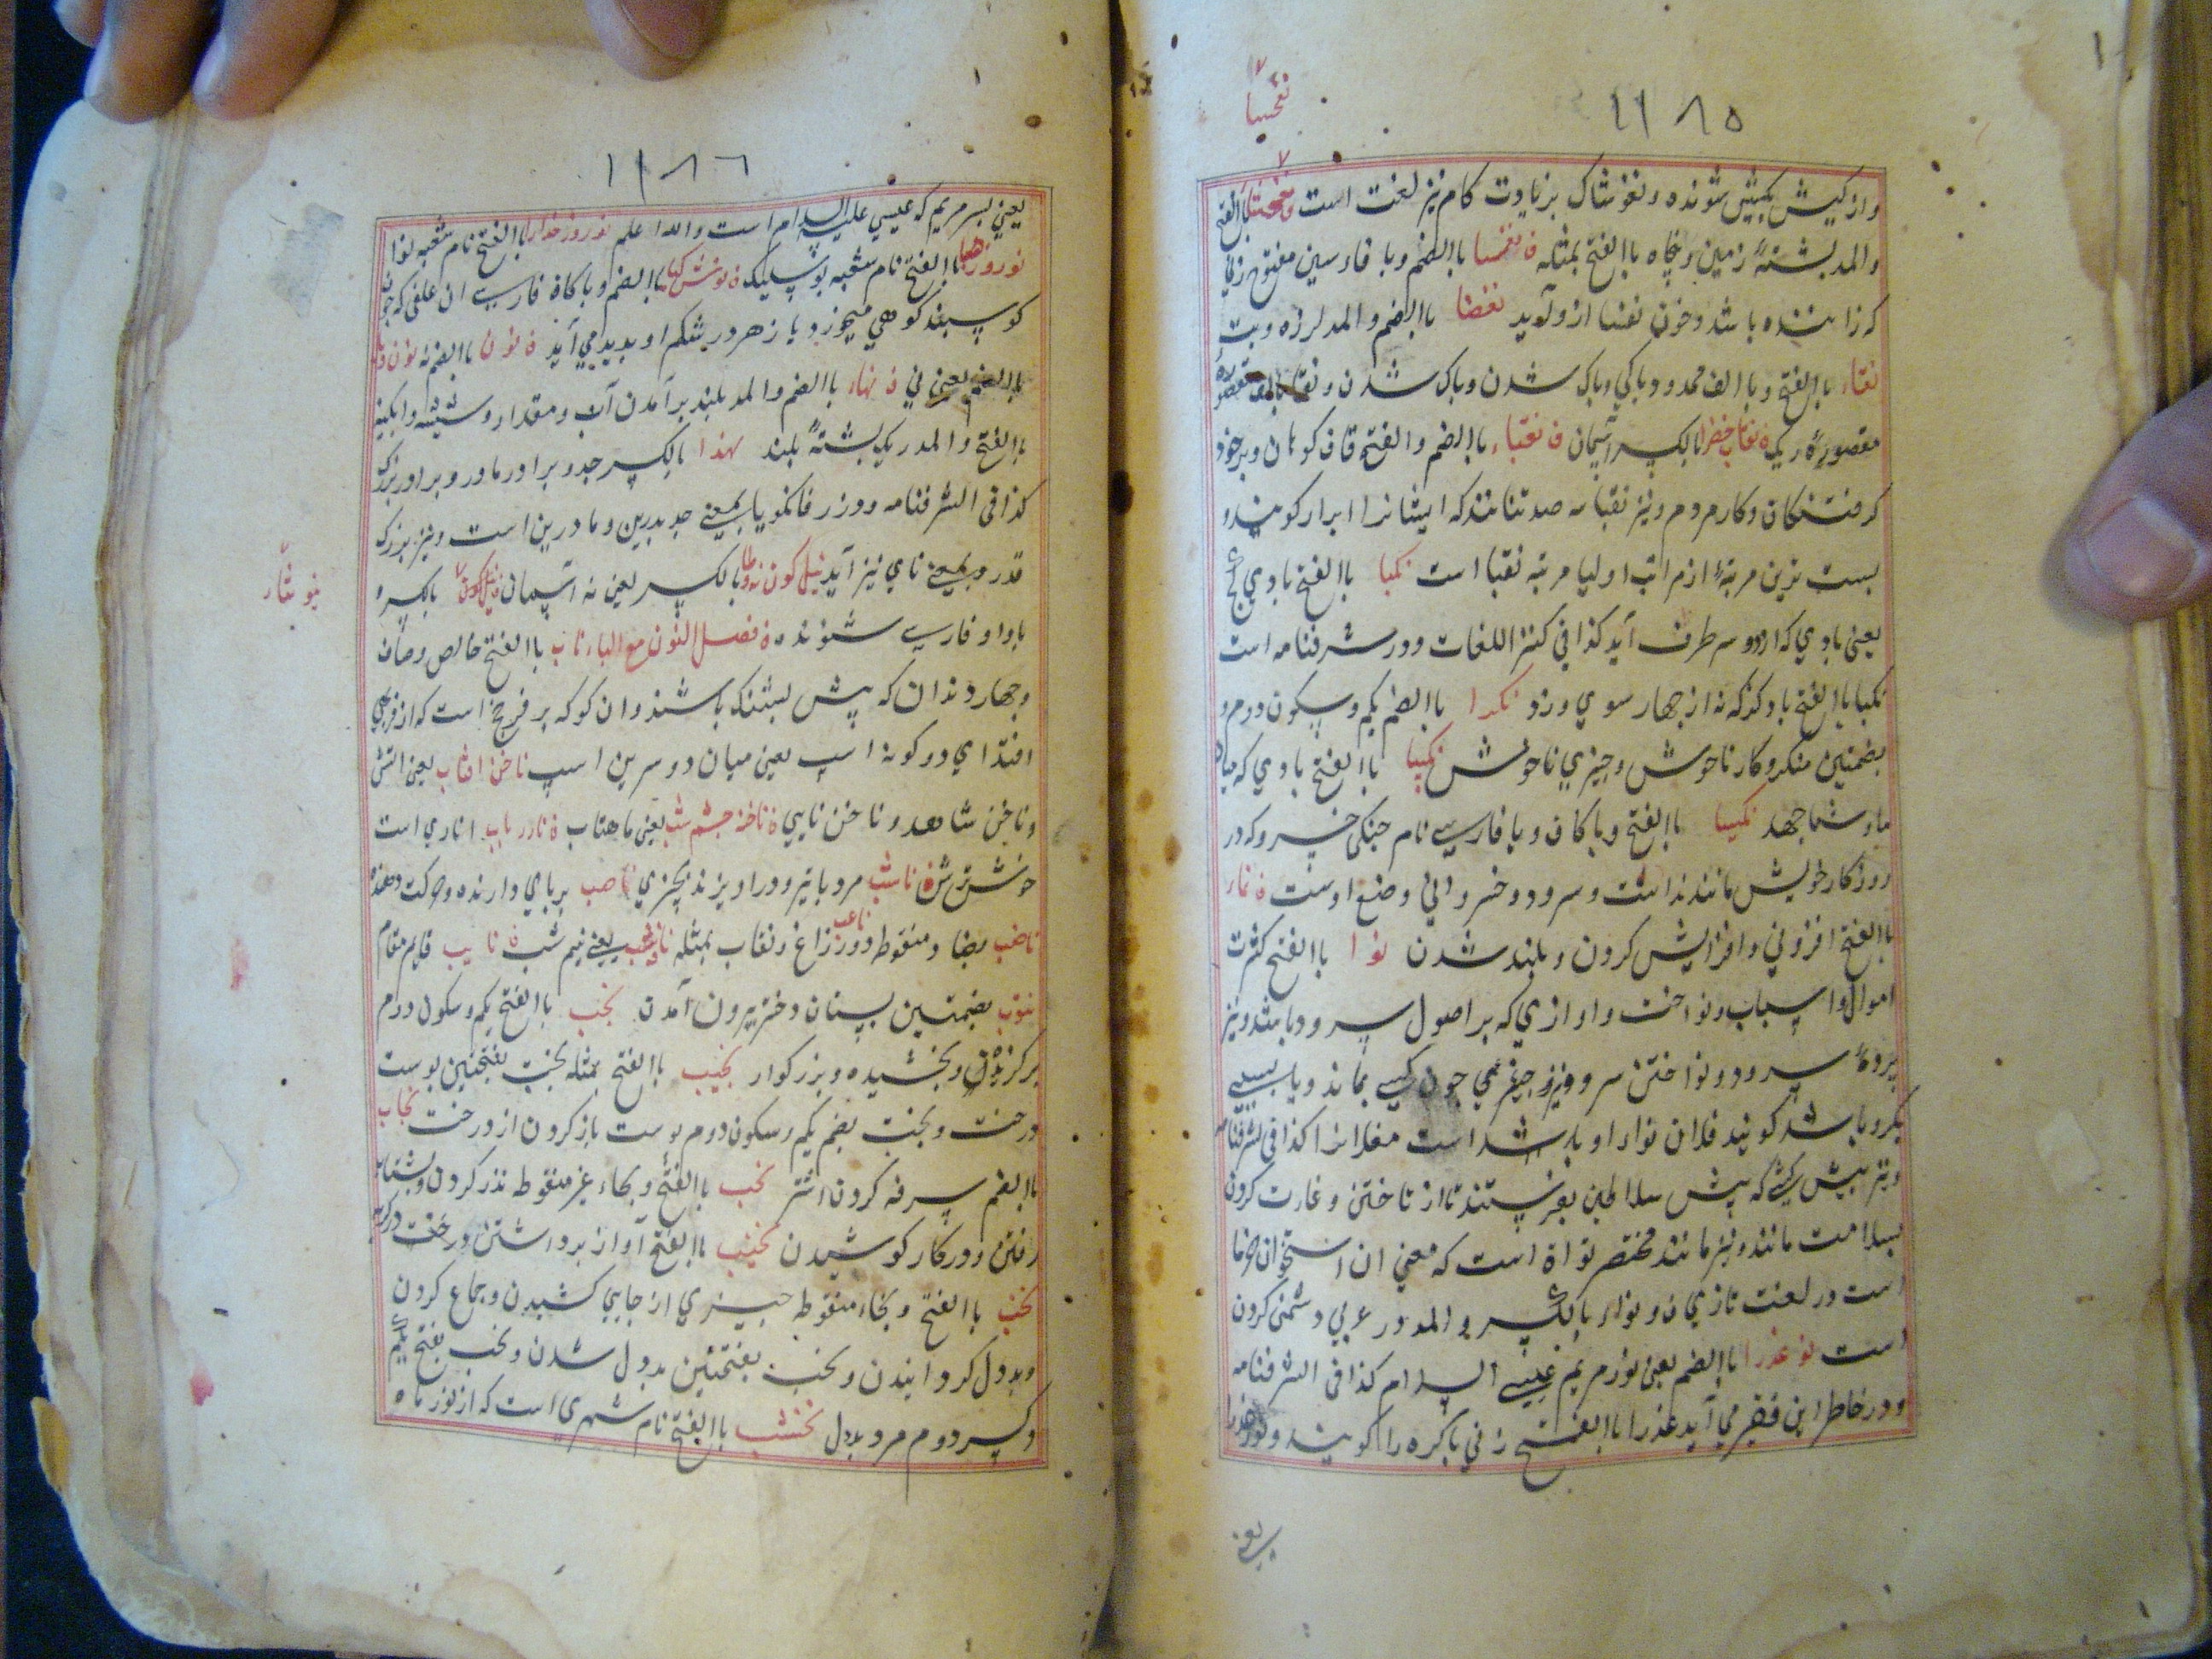 نفحسا
۱۱۸۵
واز کیش بکیش شونده ونغوشاک بزیادت کام نیز لغت است نفخا بالفتح
والمد پشتهٔ زمین وپنجاه باالفتح بمثله ف نفسا باالضم وبا فا وسین مفتوح زنی
که زاینده باشد وخون نفسا ازو آید نفضا باالضم والمد لرزه وتب
نقاء باالفتح وباالف ممدود پاکی وپاک شدن وپاک شدن ونقا بالف مقصوره
مقصورهٔ ریک ف نقاب خضرا بالکسر آسمان ف نقباء باالضم والفتح قاف کوهان وبرخود
کرفتنکان وکار مردم ونیز نقبا سه صد تنانندکه ایشانرا ابرار کویند و
پست ترین مرتبهٔ از مراتب اولیا مرتبه نقبا است نکبا باالفتح بادی کج
یعنی بادی که از دو سر طرف آید کذا فی کنز اللغات ودر شرفنامه است
نکبا باالفتح بادکژ که نه از چهار سوی وزد نکرا باالضم یکم وسکون دوم و
بضمتین منکر وکار ناخوش وچیزی ناخوش نکیبا باالفتح بادی که میان
باد شما جهد نکیسا باالفتح وبا کاف وبا فارسی نام چنکی خسرو که در
روزکار خویش مانند نداشت وسرود خسروانی وضع اوست ف نماء
باالفتح افزونی وافزایش کردن وبلند شدن نوا باالفتح کثرت
اموال واسباب ونواخت واوازی که بر اصول سرود باشد ونیز
پردهٔ سرود ونواختن سرود ونیز چیزی چون کسی بماند ویا بسی
بکرو باشد کویند فلان نواء او باشد است مغلانرا کذا فی شرفنامه
ونیز پیش کشی که پیش سلاطین بفرستند تا از تاختن وغارت کردن
بسلامت مانند ونیز مانند مختصر نواة است که معنی ان استخوان خرما
است در لغت تازی ف ونواء بالکسر والمد در عربی دشمنی کردن
است نور عذرا باالضم یعنی نور مریم عیسی السلام کذا فی الشرفنامه
ودر خاطر این فقیر می آید عذرا باالفتح زنی باکره را کویند ونور عذرا
یعنی
۱۱۸۶
یعنی پسر مریم که عیسی علیه السلام است والله اعلم نوروز خارا باالفتح نام شعبه نوا
نوروز صبا باالفتح نام شعبه بوسلیک ف نوش کیا باالضم وبا کاف فارسی ان علفی که چون
کوسپند کوهی میچرد وپا زهر در شکم او پدید می آید ف نون باالضم نه نون ویا
باالضم یعنی نی ف نهاء باالضم والمد بلند برآمدن آب ومقدار وشیشه وابکینه
باالفتح والمد ریک پشتهٔ بلند نهذا بالکسر جد وپدر اور مادر وبرادر بزرک
کذا فی الشرفنامه ودر زفانکویا بمعنی جد پدرین ومادرین است ونیز بزرک
قدر وبمعنی نای نیز آید نیلکون نه وطا بالکسر یعنی نه آسمان نیلکون بالکسره
نیوشا
باواو فارسی شنونده ف فصل النون مع الباء ناب باالفتح خالص وصاف
وچهار دندان که پیش بستنک باشند وان کوکه بر فرج است که از فربهی
افتد ای در کونه اسپ یعنی میان دو سرین اسپ ناخن افتاب یعنی اتش
وناخن شاهد وناخن نایبی ف ناخنه چشم شب یعنی ماهتاب ف نادر باب اناری است
خوش ترش ف ناشب مرد باتیر ودر اویزنده بچیزی ناصب برپای دارنده وحرکت دهنده
ناضب بضا ومنقوط دور ناعب زاغ ونعاب بمثله نافه شب یعنی نیم شب ف نایب قایم مقام
نتوب بضمتین پستان دختر بیرون آمدن نجب باالفتح یکم وسکون دوم
برکزیدن وبخشیده وبزرکوار نجیب باالفتح بمثله نجب بفتحتین پوست
درخت ونجب بضم یکم وسکون دوم پوست باز کردن از درخت نحاب
باالضم سرفه کردن اشتر نحب باالفتح وبحاء غیر منقوط نذر کردن وبشتاب
رفتن ودر کار کوشیدن نحیب باالفتح آواز برداشتن درخت در کریه
نخب باالفتح وبخاء منقوط چیزی از جایی کشیدن وجماع کردن
وبددل کردانیدن ونخب بفتحتین بددل شدن ونخب بفتح یکم
وکسر دوم مرد بددل نخشب باالفتح نام شهری است که از نور ماه